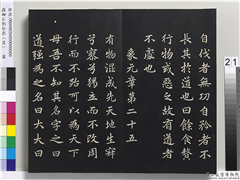 自伐者無功自矜者不
長其於道也曰餘食贅
行物或惡之故有道者
不處也
象元章第二十五
有物混成先天地生寂
兮寥兮獨立而不改周
行而不殆可以為天下
母吾不知其名字之曰
道強為之名曰大大曰
21